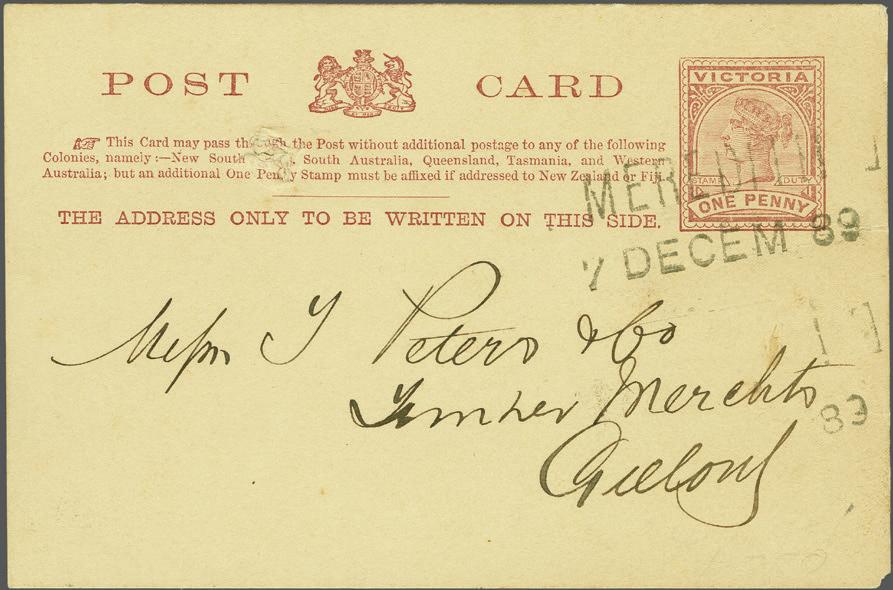 POST CARD
VICTORIA
STAMP DUTY
ONE PENNY
☞ This Card may pass through the Post without additional postage to any of the following
Colonies, namely:—New South South Australia, Queensland, Tasmania, and Western
Australia; but an additional One Penny Stamp must be affixed if addressed to New Zealand or Fiji.
THE ADDRESS ONLY TO BE WRITTEN ON THIS SIDE.
MEREDITH
7 DECEM 89
Messrs J Peters & Co
Timber Merchts
Geelong
89